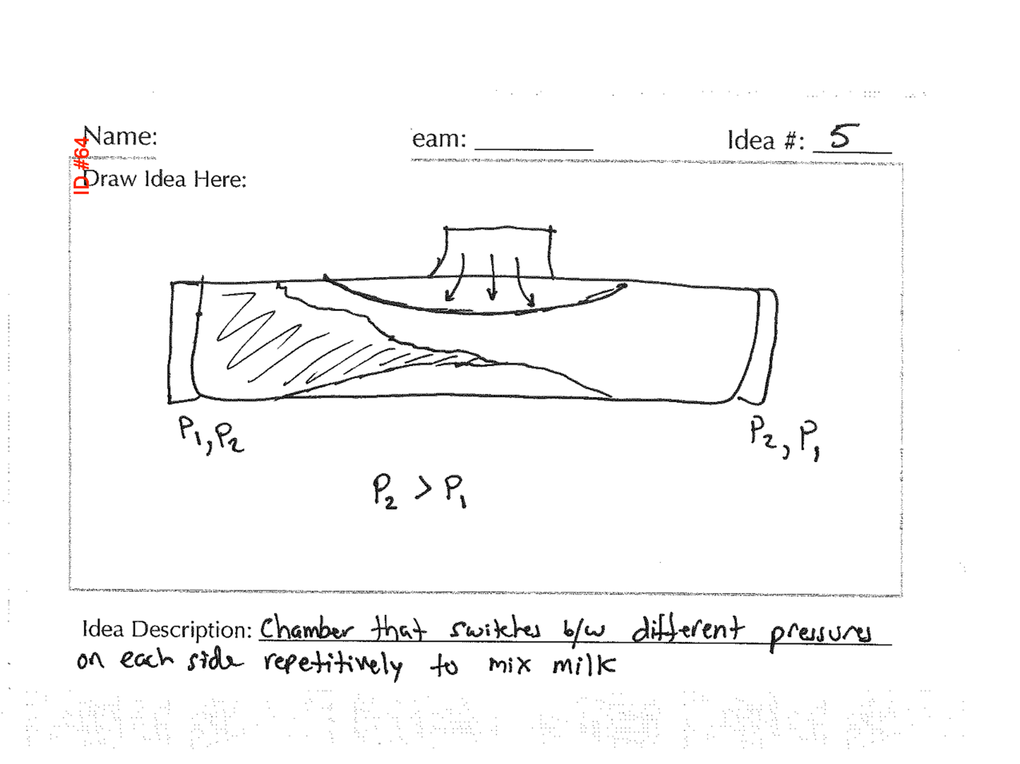 Name: eam: Idea #: 5
ID #64
Draw Idea Here:
P1, P2 P2, P1
P2 > P1
Idea Description: Chamber that switches b/w different pressures
on each side repetitively to mix milk